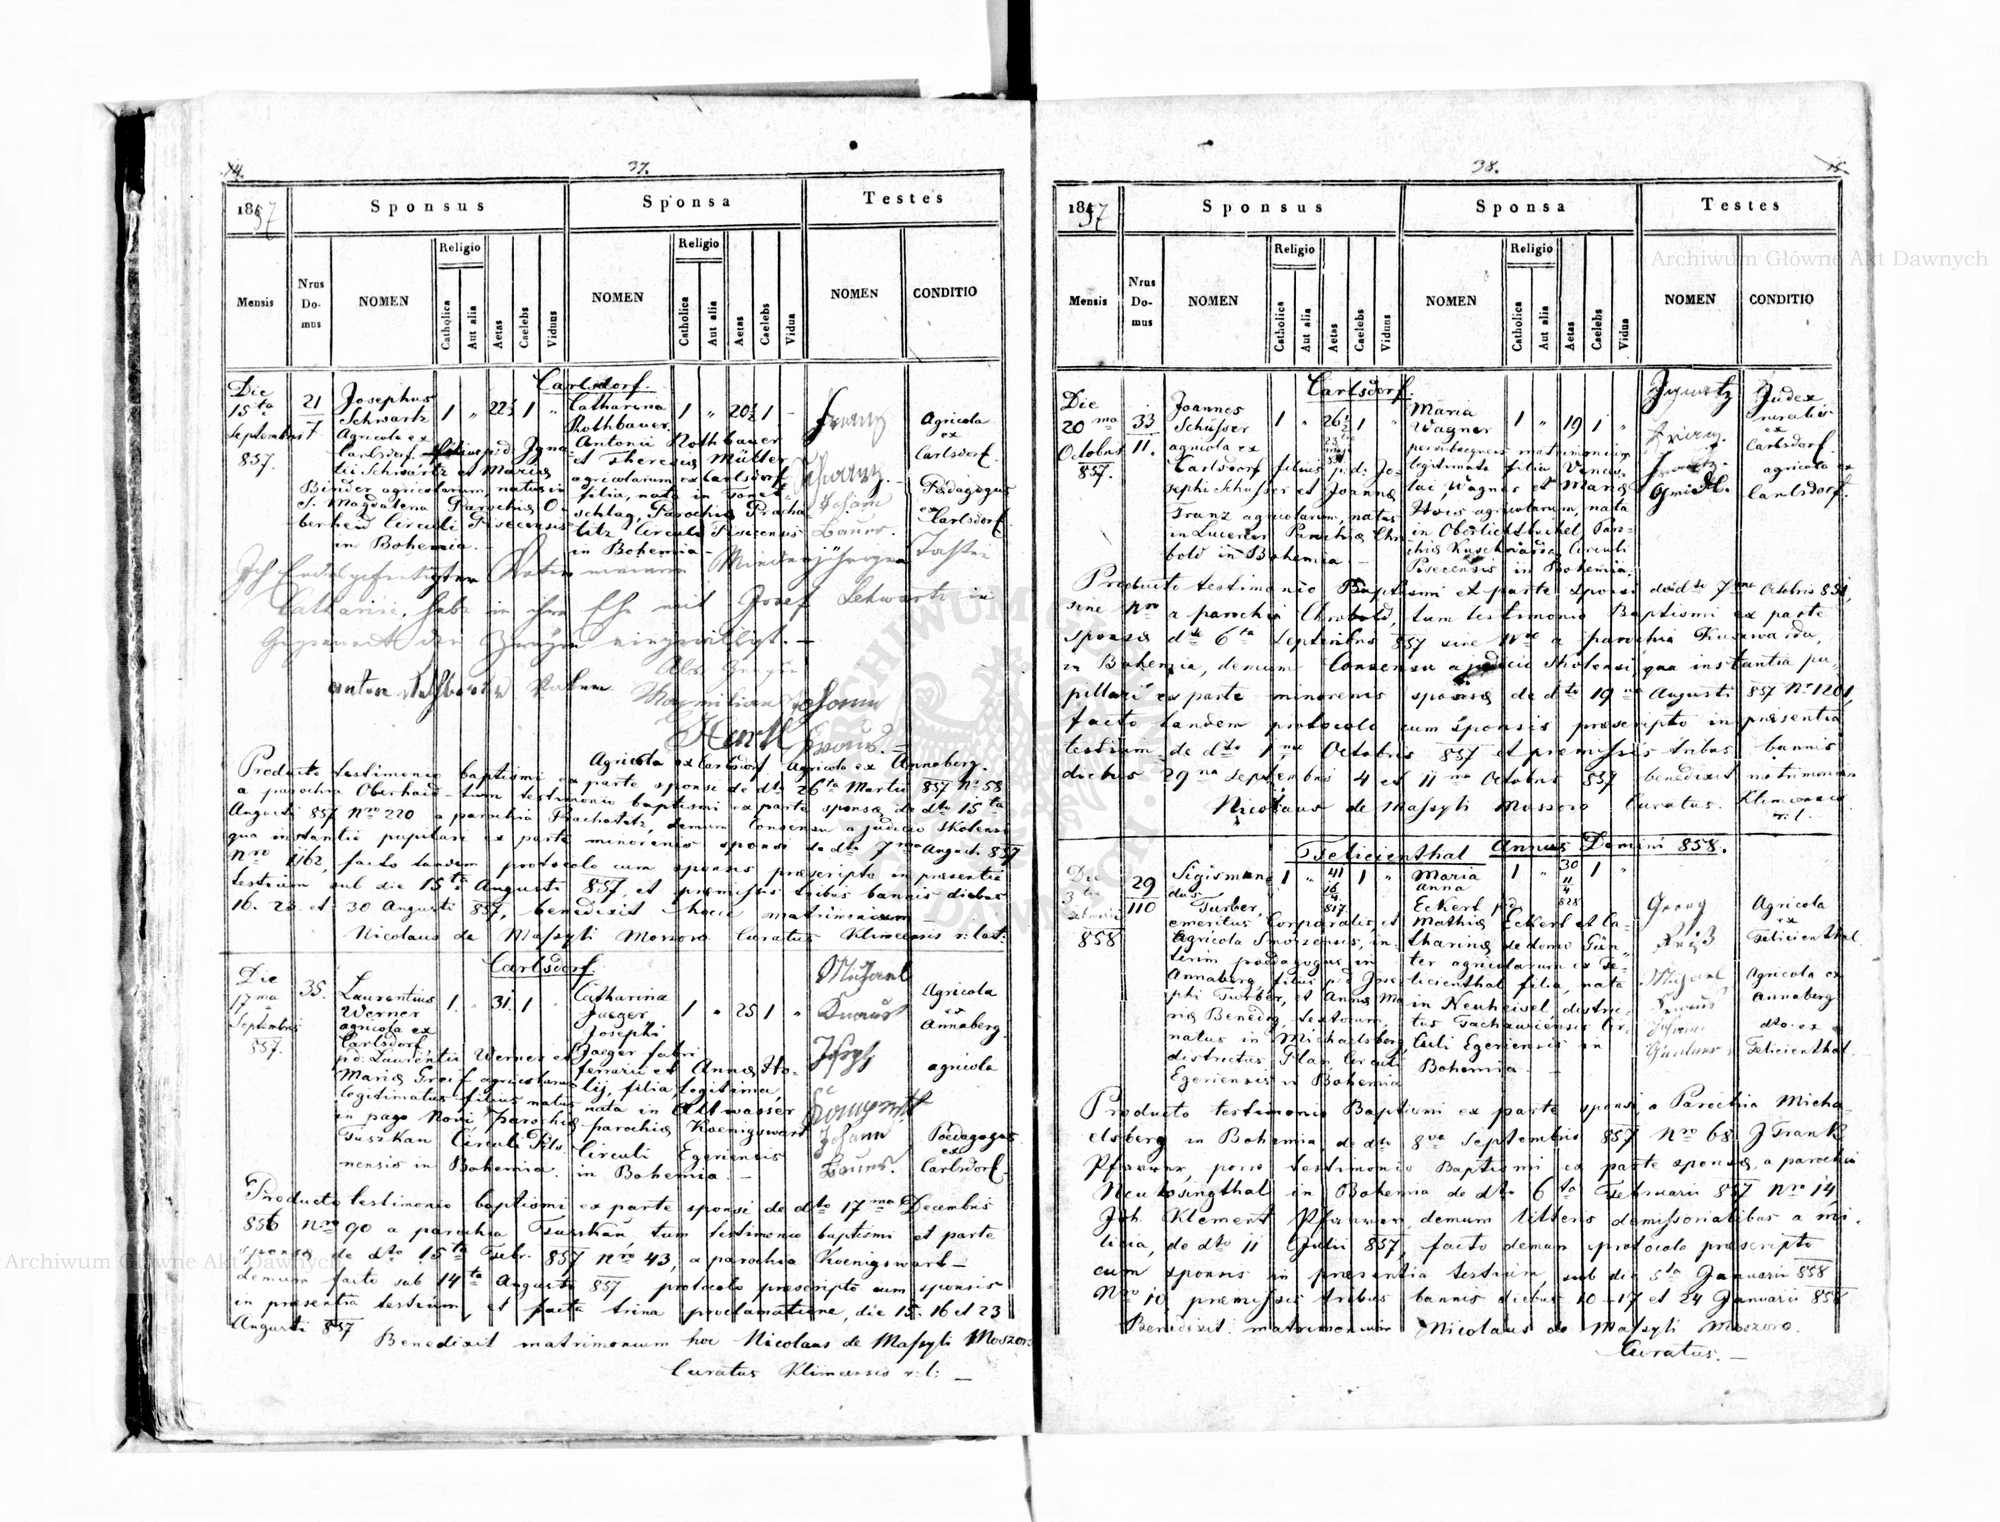 37.
1857
Sponsus
Sponsa
Testes
Mensis
Nrus Do-mus
NOMEN
Religio
Catholica
Aut alia
Aetas
Caelebs
Viduus
NOMEN
Religio
Catholica
Aut alia
Aetas
Caelebs
Vidua
NOMEN
CONDITIO
Carlsdorf.
Die
15ta
Septembris
857.
21
7
Josephus
Schwartz
Agricola ex
Carlsdorf filius p.d. Igna-
tii Schwartz et Mariae
Binder agricolarum, natus in
S. Magdalena Parochiae O-
berheid Circuli Pisecensis
in Bohemia.
1 " 22½ 1 "
Catharina
Rothbauer
Antonii Rothbauer
et Theresiae Müller
agricolarum ex Carlsdorf
filia, nata in
schlag, Parochiae Pracha-
titz Circuli Pisecensis
in Bohemia
1 " 20½ 1 -
Franz
Johann
Bauer.
Agricola
ex
Carlsdorf.
Pädagogus
ex
Carlsdorf.
Ich Endesgefertigter Vater meiner Minderjährigen Tochter
Catharine, habe in ihre Ehe mit Josef Schwartz in
Gegenwart der Zeugen eingewilligt. —
Als Zeugen
Anton Rothbauer Vater
Maxmilian
Hartl
Johann
Kraus.
Agricola ex Carlsdorf Agricola ex Annaberg.
Producto testimonio baptismi ex parte sponsi de dto 26ta Martii 857 No 58
a parochia Oberhaid - tum testimonio baptismi ex parte sponsae de dto 15ta
Augusti 857 Nro 220 a parochia Prachatitz, demum Consensu a judicio Skolensi
qua instantia pupillari ex parte minorenis sponsi de dto 7ma Augusti 857
Nro 1162, facto tandem protocolo cum sponsis praescripto in praesentia
testium sub die 15ta Augusti 857, et praemissis tribus bannis diebus
16. 23. et 30 Augusti 857, benedixit hocce matrimonium
Nicolaus de Massyli Moszoro Curatus Klimcensis r: lat:
Carlsdorf
Die
17ma
Septembris
857.
35.
Laurentius
Werner
agricola ex
Carlsdorf,
p.d. Laurentii Werner et
Mariae Greif agricolarum
legitimatus filius natus
in pago Novi, parochiae
Tuszkau Circuli Pilz-
nensis in Bohemia.
1. " 31. 1
Catharina
Jaeger
Josephi
Jaeger fabri
ferrarii et Annae Ho-
lij, filia legitima,
nata in Altwasser
parochiae Koenigswart
Circuli Egeriensis
in Bohemia. —
1 " 25 1 "
Michael
Knaus
Joseph
Johann
Bauer.
Agricola
ex
Annaberg.
agricola
Pädagogus
ex
Carlsdorf.
Producto testimonio baptismi ex parte sponsi de dto 17ma Decembris
856 Nro 90 a parochia Tuszkau, tum testimonio baptismi ex parte
sponsae de dto 15ta Febr. 857 Nro 43, a parochia Koenigswart —
demum facto sub 14ta Augusti 857 protocolo praescripto cum sponsis
in praesentia testium, et facta trina proclamatione, die 15. 16 et 23
Augusti 857
Benedixit matrimonium hoc Nicolaus de Massyli Moszoro
Curatus Klimcensis r: l: —
38.
1857
Sponsus
Sponsa
Testes
Mensis
Nrus Do-mus
NOMEN
Religio
Catholica
Aut alia
Aetas
Caelebs
Viduus
NOMEN
Religio
Catholica
Aut alia
Aetas
Caelebs
Vidua
NOMEN
CONDITIO
Carlsdorf.
Die
20ma
Octobris
857.
33
11.
Joannes
Schusser
agricola ex
Carlsdorf filius p.d. Jo-
sephi Schusser et Joannae
Franz agricolarum, natus
in Lucerier Parochiae Chro-
bold in Bohemia. —
1 " 26½ 1 "
Maria
Wagner
per subsequens matrimonium
legitimata filia Vences-
lai Wagner et Mariae
agricolarum, nata
in Oberlichtbuchel Paro-
chiae Kuschwarda Circuli
Pisecensis in Bohemia.
1 " 19 1 "
Ignatz
Franz
Greidl.
Judex
ruralis
ex
Carlsdorf.
agricola ex
Carlsdorf.
Producto testimonio Baptismi ex parte sponsi de dto 7ma Octobris 851,
sine Nro a parochia Chrobold, tum testimonio Baptismi ex parte
sponsae dto 6ta Septembris 857 sine Nro a parochia Kuschwarda,
in Bohemia, demum Consensu a judicio Skolensi, qua instantia pu-
pillari ex parte minorenis sponsae de dto 19na Augusti 857 No 1201,
facto tandem protocolo cum sponsis praescripto in praesentia
testium de dto 1ma Octobris 857 et premissis tribus bannis
diebus 29na Septembris 4 et 11ma Octobris 857 benedixit matrimonium
Nicolaus de Massyli Moszoro Curatus. Klimcensis
r: l.
Felicienthal Annus Domini 858.
Die
3tia
Februarii
858
29
110
Sigismun-
dus
Turber,
emeritus Corporalis, et
Agricola Smorzensis, in-
terim paedagogus in
Annaberg, filius p.d. Jose-
phi Turber, et Annae Ma-
riae Benedig, textorum,
natus in Michaelsberg,
districtus Plan, Circuli
Egeriensis in Bohemia
1 " 41 1 "
16
4
817
Maria
Anna
Eckert p.d.
Mathiae Eckert et Ca-
tharinae de domo Gün-
ter agricolarum ex Fe-
licienthal filia, nata
in Neuheisel, distric-
tus Tachauciensis Cir-
culi Egeriensis in
Bohemia. —
1 " 30 1 "
11
4
828
Georg
Michael
Knaus
Johann
Güntner
Agricola
ex
Felicienthal.
Agricola ex
Annaberg
dto ex
Felicienthal.
Producto testimonio Baptismi ex parte sponsi, a Parochia Micha-
elsberg in Bohemia de dto 8va Septembris 857 Nro 68. J Frank
Pfarrer, porro testimonio Baptismi ex parte sponsae, a parochia
Neulosingthal in Bohemia de dto 6ta Februarii 857 Nro 14,
Joh. Klement Pfarrer, demum litteris demissorialibus a mi-
litia, de dto 11 Julii 857, facto demum protocolo praescripto
cum sponsis in praesentia testium, sub die 5ta Januarii 858
Nro 10 premissis tribus bannis diebus 10-17 et 24 Januarii 858
Benedixit matrimonium Nicolaus de Massyli Moszoro.
Curatus. —
Archiwum Główne Akt Dawnych
Archiwum Główne Akt Dawnych